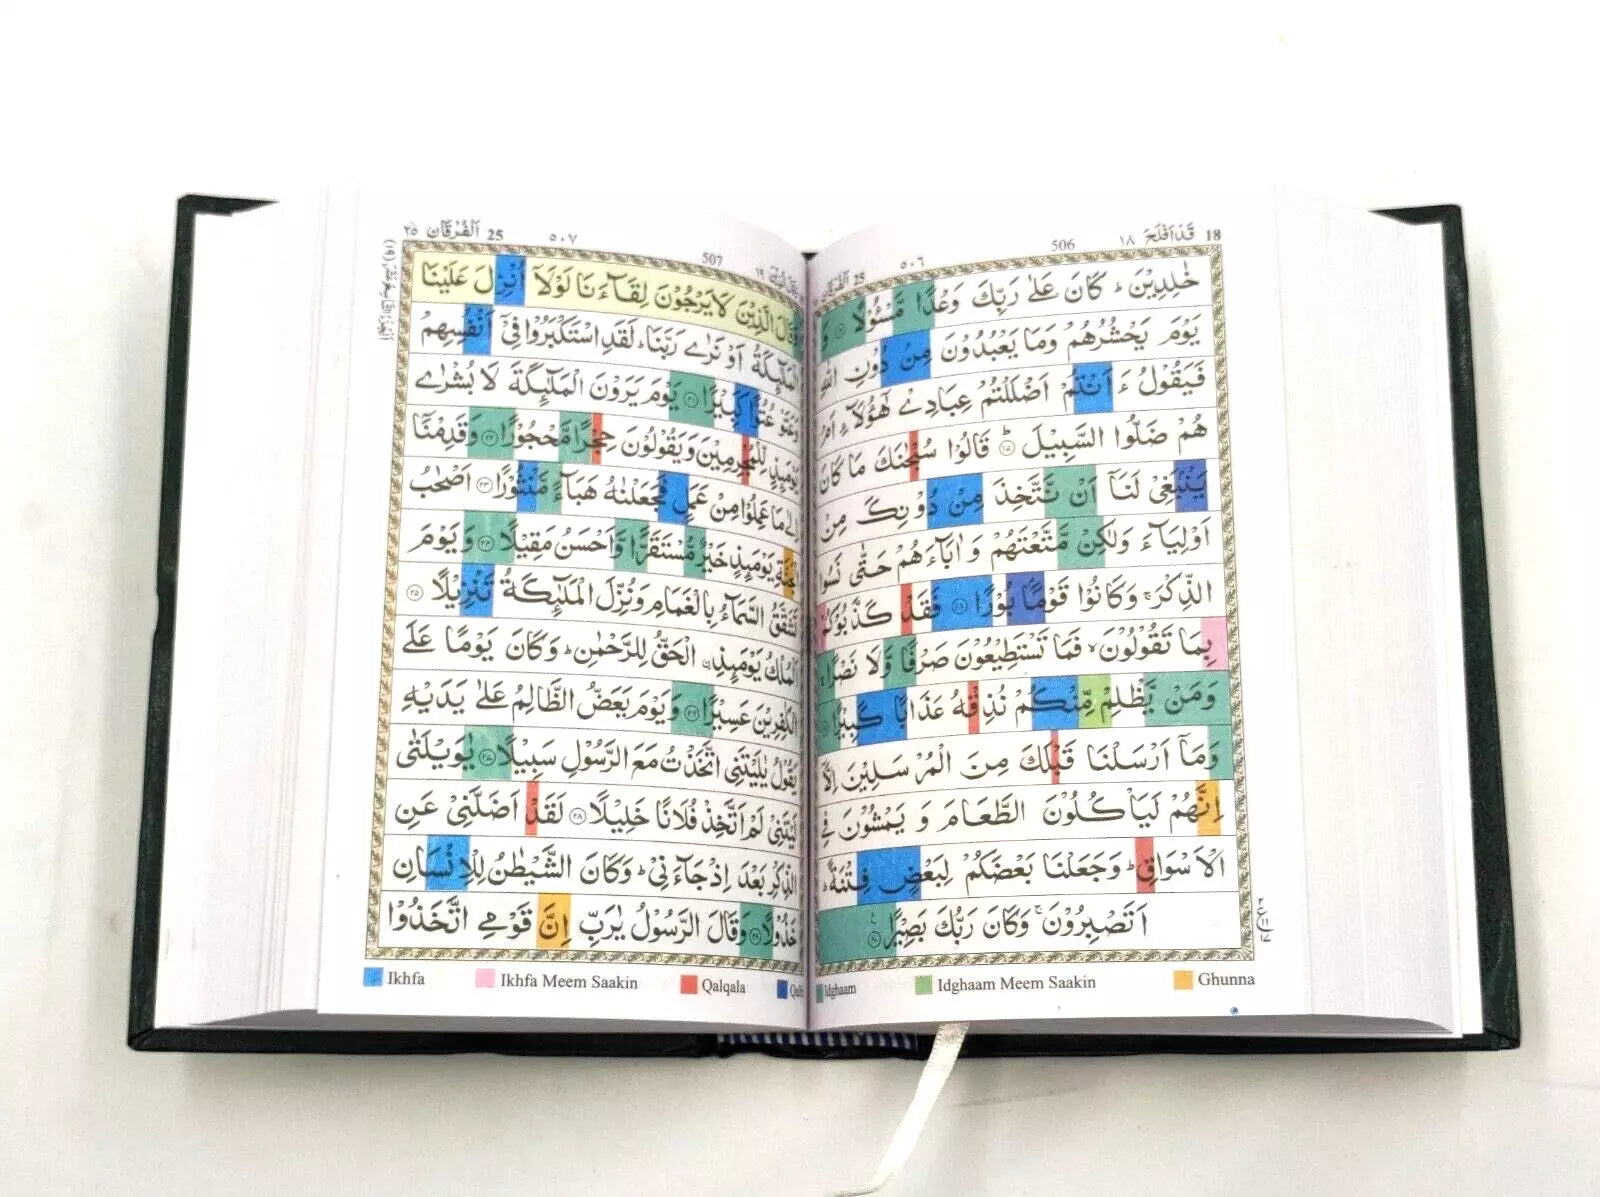 18 قَدْ اَفْلَحَ ١٨
506
٥٠٦
25
خٰلِدِيْنَ ؕ كَانَ عَلٰى رَبِّكَ وَعْدًا مَّسْـُٔوْلًا ﴿۱۶﴾ وَ
يَوْمَ يَحْشُرُهُمْ وَمَا يَعْبُدُوْنَ مِنْ دُوْنِ اللّٰهِ
فَيَقُوْلُ ءَاَنْتُمْ اَضْلَلْتُمْ عِبَادِيْ هٰٓؤُلَآءِ اَمْ
هُمْ ضَلُّوا السَّبِيْلَ ؕ ﴿۱۷﴾ قَالُوْا سُبْحٰنَكَ مَا كَانَ
يَنْۢبَغِيْ لَنَاۤ اَنْ نَّتَّخِذَ مِنْ دُوْنِكَ مِنْ
اَوْلِيَآءَ وَلٰكِنْ مَّتَّعْتَهُمْ وَاٰبَآءَهُمْ حَتّٰى نَسُوا
الذِّكْرَ ۚ وَكَانُوْا قَوْمًۢا بُوْرًا ﴿۱۸﴾ فَقَدْ كَذَّبُوْكُمْ
بِمَا تَقُوْلُوْنَ ۙ فَمَا تَسْتَطِيْعُوْنَ صَرْفًا وَّلَا نَصْرًا ۚ
وَمَنْ يَّظْلِمْ مِّنْكُمْ نُذِقْهُ عَذَابًا كَبِيْرًا ﴿۱۹﴾
وَمَاۤ اَرْسَلْنَا قَبْلَكَ مِنَ الْمُرْسَلِيْنَ اِلَّاۤ
اِنَّهُمْ لَيَاْكُلُوْنَ الطَّعَامَ وَيَمْشُوْنَ فِي
الْاَسْوَاقِ ؕ وَجَعَلْنَا بَعْضَكُمْ لِبَعْضٍ فِتْنَةً ؕ
اَتَصْبِرُوْنَ ۚ وَكَانَ رَبُّكَ بَصِيْرًا ﴿۲۰﴾
Idghaam
Idghaam Meem Saakin
Ghunna
507
٥٠٧
25 اَلْفُرْقَان ٢٥
وَقَالَ الَّذِيْنَ لَا يَرْجُوْنَ لِقَآءَنَا لَوْلَاۤ اُنْزِلَ عَلَيْنَا
الْمَلٰٓئِكَةُ اَوْ نَرٰى رَبَّنَا ؕ لَقَدِ اسْتَكْبَرُوْا فِيْۤ اَنْفُسِهِمْ
وَعَتَوْ عُتُوًّا كَبِيْرًا ﴿۲۱﴾ يَوْمَ يَرَوْنَ الْمَلٰٓئِكَةَ لَا بُشْرٰى
يَوْمَئِذٍ لِّلْمُجْرِمِيْنَ وَيَقُوْلُوْنَ حِجْرًا مَّحْجُوْرًا ﴿۲۲﴾ وَقَدِمْنَاۤ
اِلٰى مَا عَمِلُوْا مِنْ عَمَلٍ فَجَعَلْنٰهُ هَبَآءً مَّنْثُوْرًا ﴿۲۳﴾ اَصْحٰبُ
الْجَنَّةِ يَوْمَئِذٍ خَيْرٌ مُّسْتَقَرًّا وَّاَحْسَنُ مَقِيْلًا ﴿۲۴﴾ وَيَوْمَ
تَشَقَّقُ السَّمَآءُ بِالْغَمَامِ وَنُزِّلَ الْمَلٰٓئِكَةُ تَنْزِيْلًا ﴿۲۵﴾
اَلْمُلْكُ يَوْمَئِذِ ۟الْحَقُّ لِلرَّحْمٰنِ ؕ وَكَانَ يَوْمًا عَلَى
الْكٰفِرِيْنَ عَسِيْرًا ﴿۲۶﴾ وَيَوْمَ يَعَضُّ الظَّالِمُ عَلٰى يَدَيْهِ
يَقُوْلُ يٰلَيْتَنِي اتَّخَذْتُ مَعَ الرَّسُوْلِ سَبِيْلًا ﴿۲۷﴾ يٰوَيْلَتٰى
لَيْتَنِيْ لَمْ اَتَّخِذْ فُلَانًا خَلِيْلًا ﴿۲۸﴾ لَقَدْ اَضَلَّنِيْ عَنِ
الذِّكْرِ بَعْدَ اِذْ جَآءَنِيْ ؕ وَكَانَ الشَّيْطٰنُ لِلْاِنْسَانِ
خَذُوْلًا ﴿۲۹﴾ وَقَالَ الرَّسُوْلُ يٰرَبِّ اِنَّ قَوْمِي اتَّخَذُوْا
Ikhfa
Ikhfa Meem Saakin
Qalqala